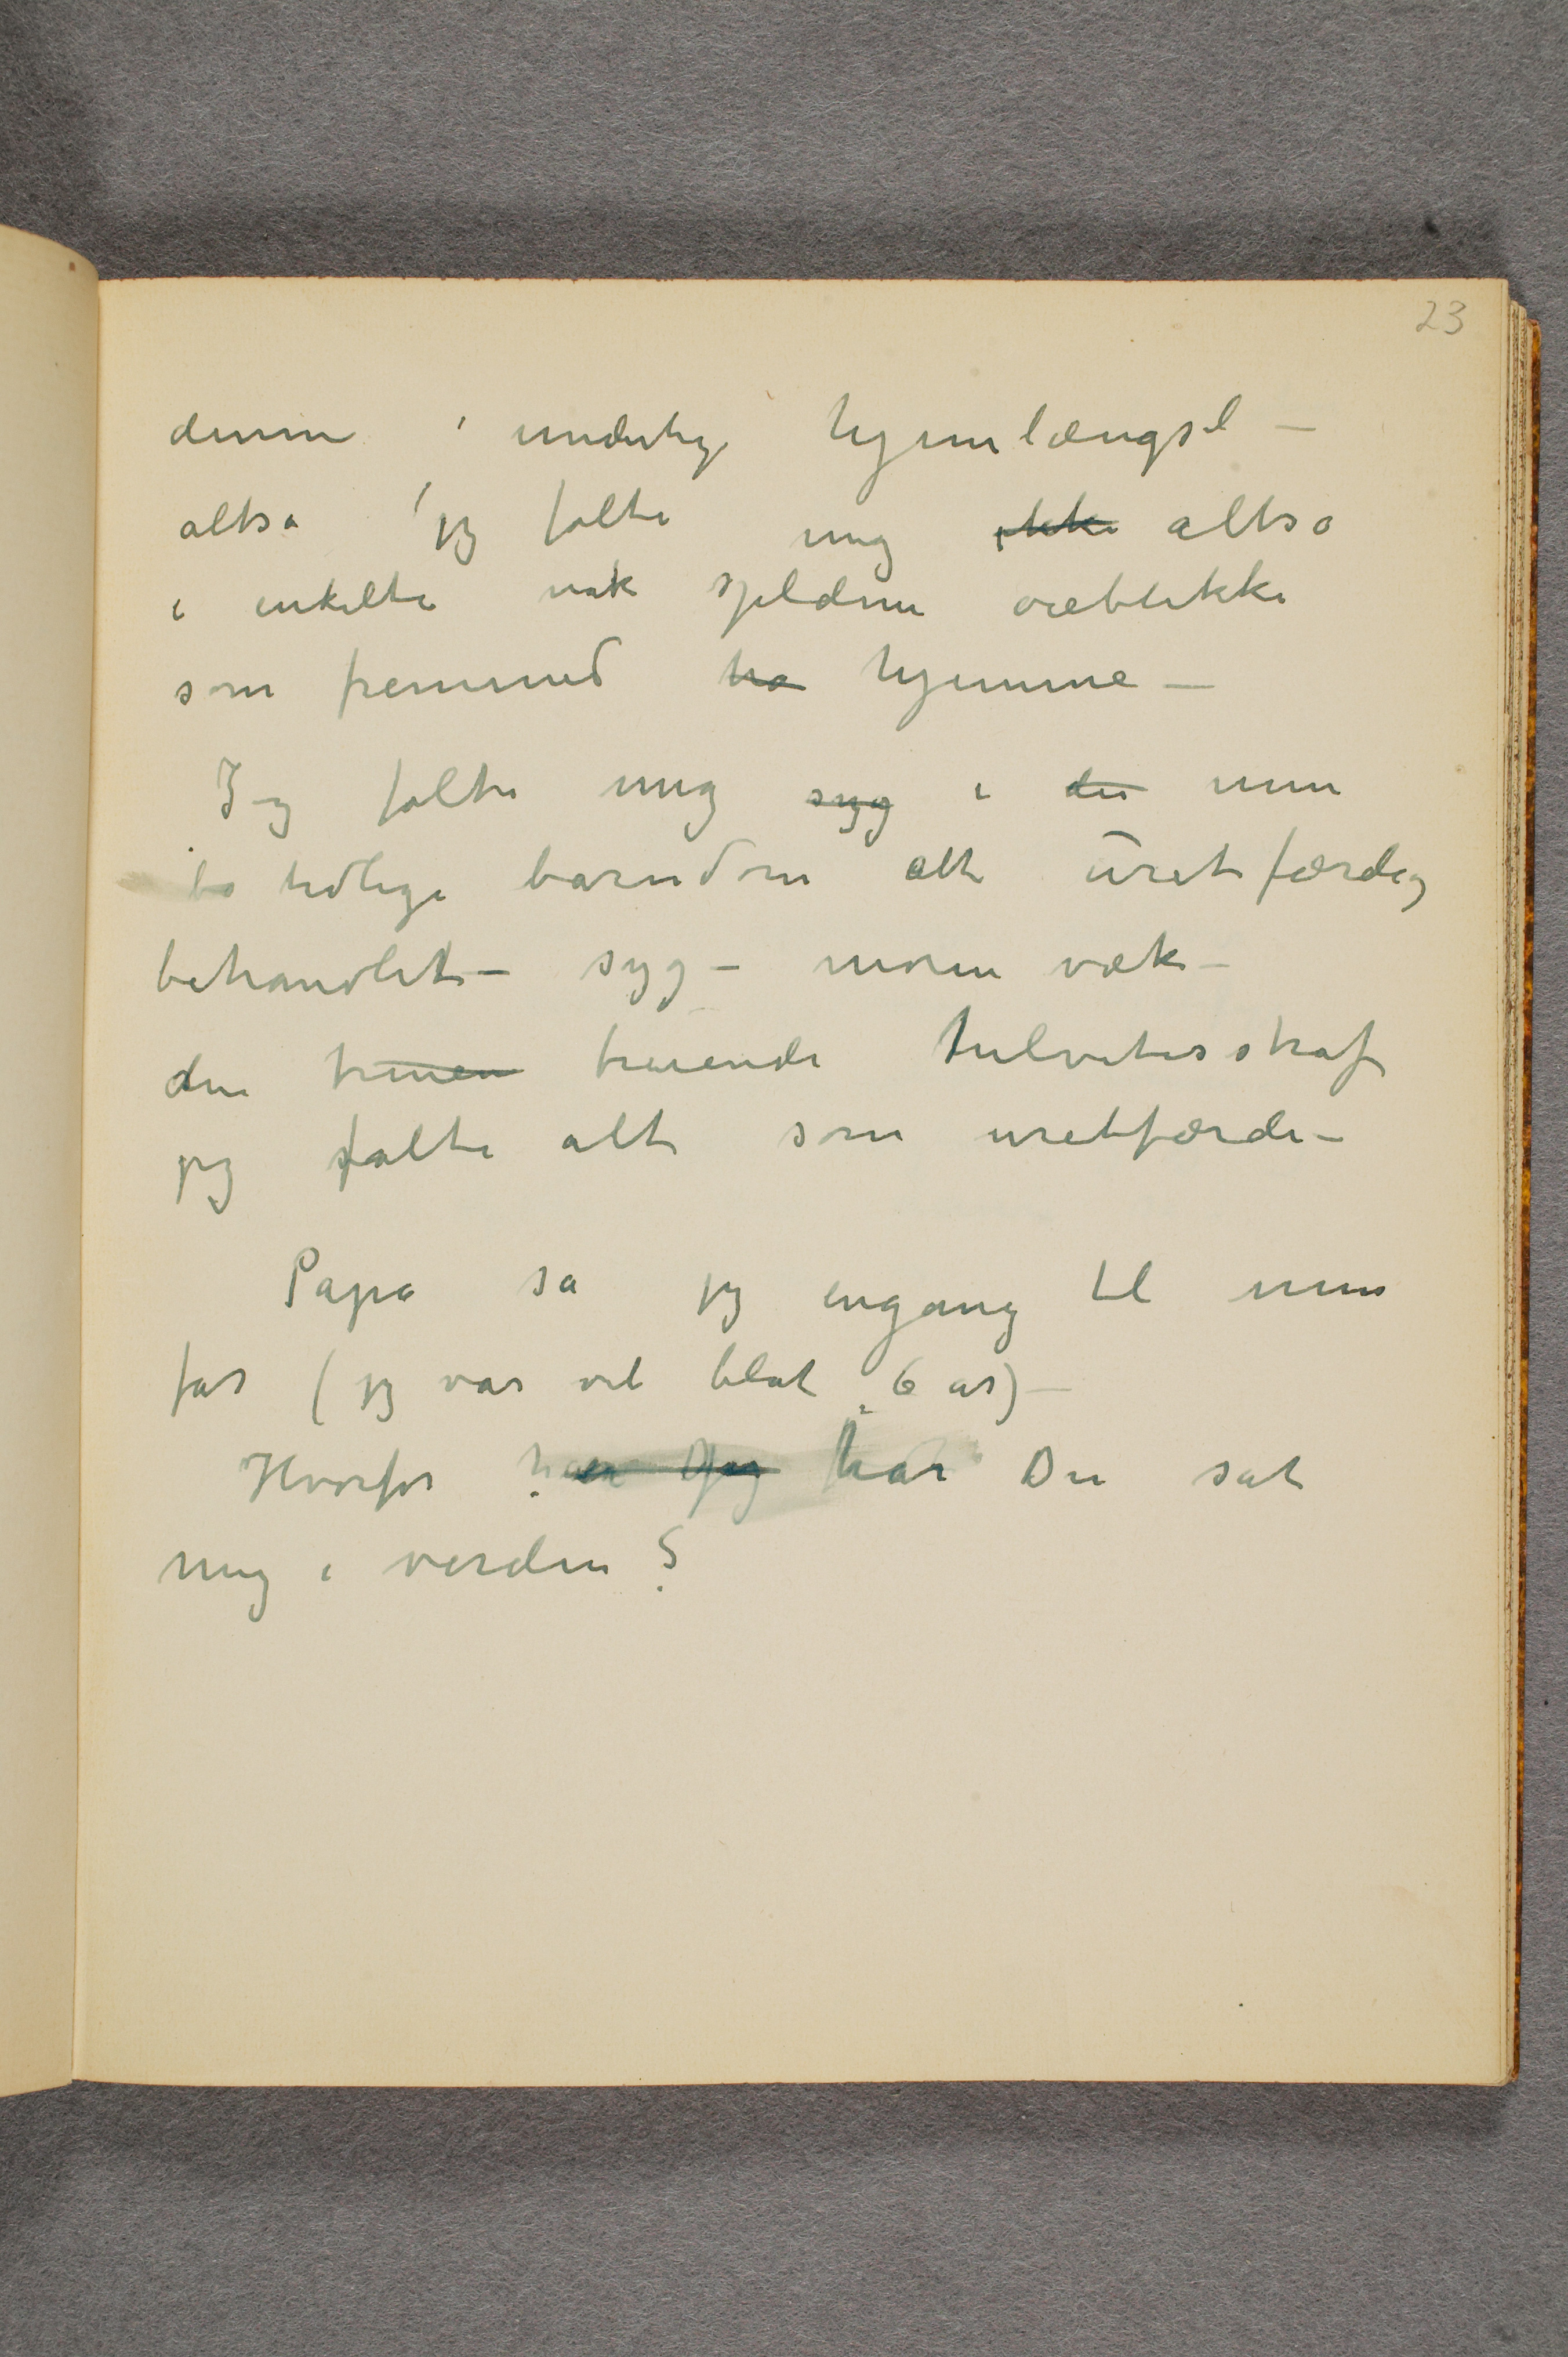 23
denne underlige hjemlængsel –
altså jeg følte mig ikke altså
i enkelte nok sjeldne øieblikke
som fremmed hjemme –
Jeg følte mig syg i den min
tidlige barndom alt uretfærdig
behandlet – syg – moren væk –
den truen truende helvetesstraf
jeg følte alt som uretfærdi –
Papa sa jeg engang til min
far (jeg var vel blot 6 år) –
Hvorfor har Jeg har Du sat
mig i verden ?